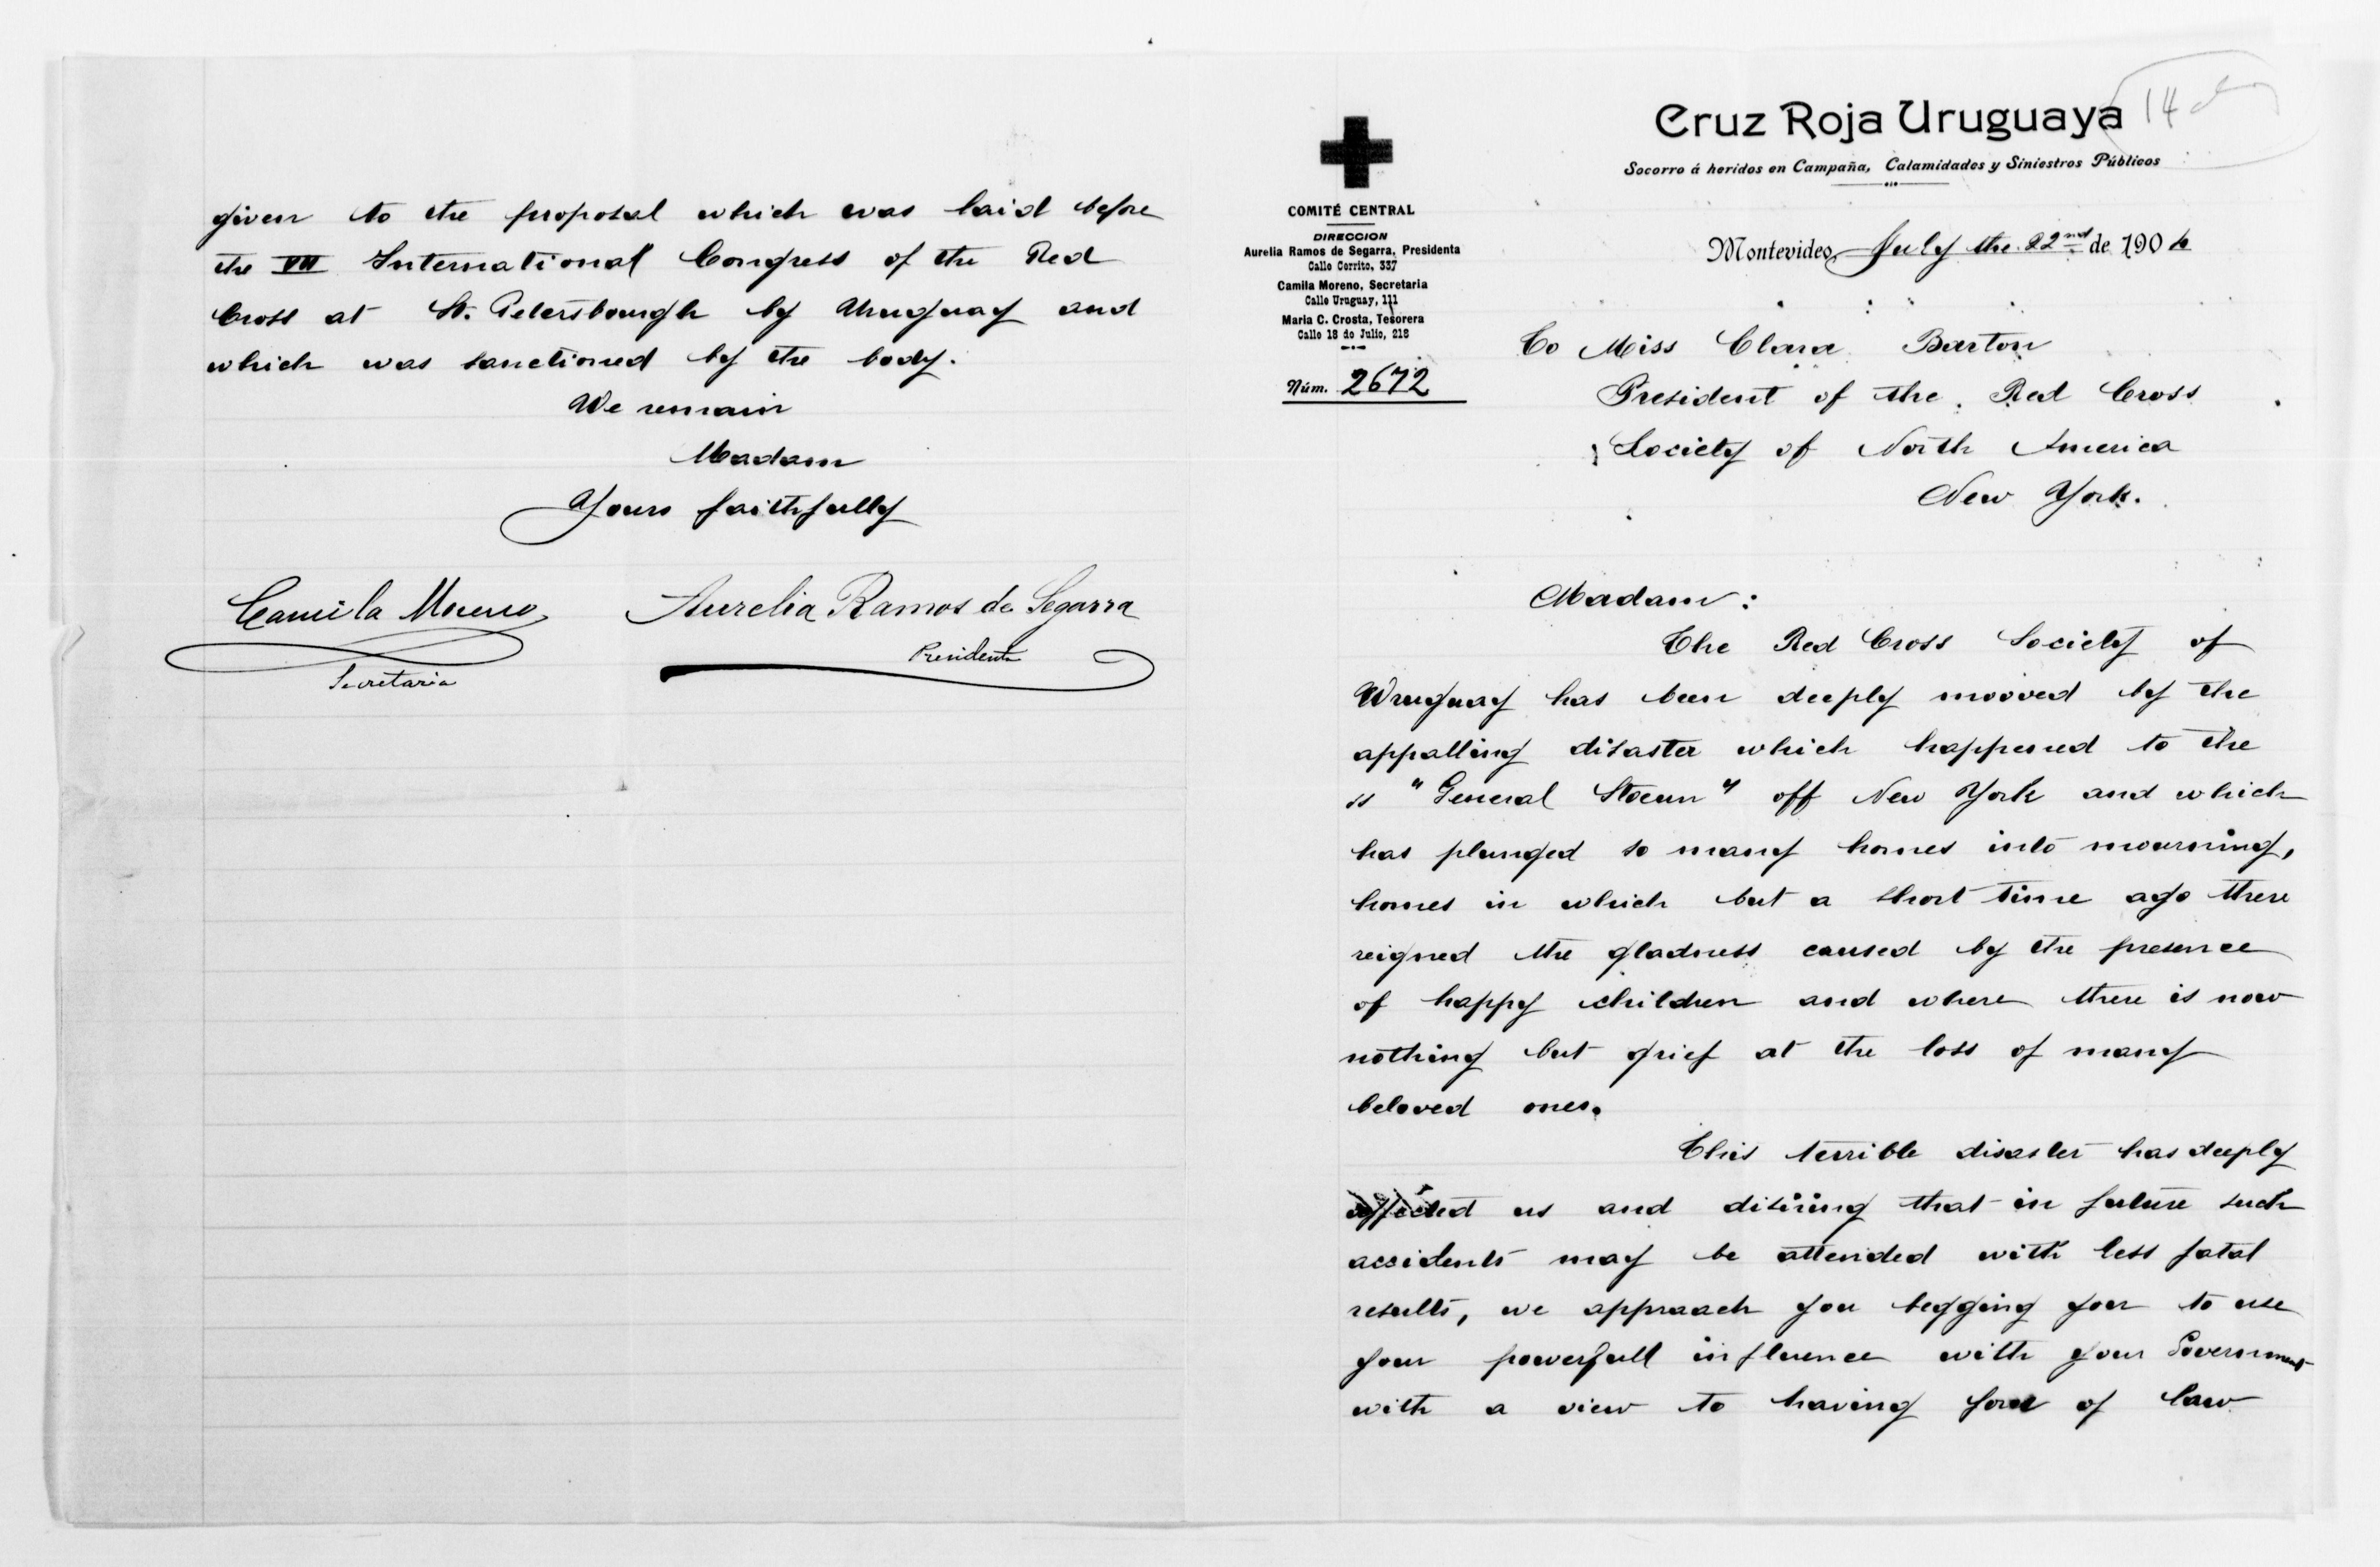 Cruz Roja Uruguaya
Socorro á heridos en Campaña, Calamidades y Siniestros Públicos
COMITÉ CENTRAL
DIRECCION
Aurelia Ramos de Segarra, Presidenta
Calle Cerrito, 337
Camila Moreno, Secretaria
Calle Uruguay, 111
Maria C. Crosta, Tesorera
Calle 18 de Julio, 218
Núm. 2672
14
Montevideo, July the 22nd de 1904
To Miss Clara Barton
President of the Red Cross
Society of North America
New York.
Madam:
The Red Cross Society of
Uruguay has been deeply mooved by the
appalling disaster which happened to the
ss "General Slocum" off New York and which
has plunged so many homes into mourning,
homes in which but a short time ago there
reigned the gladness caused by the presence
of happy children and where there is now
nothing but grief at the loss of many
beloved ones.
This terrible disaster has deeply
affected us and disiring that in future such
accidents may be attended with less fatal
results, we appraach you begging your to use
your powerfull influence with your Government
with a view to having force of law
given to the proposal which was laid before
the VII International Congress of the Red
Cross at St. Petersbourgh by Uruguay and
which was sanctioned by the body.
We remain
Madam
Yours faithfully
Camila Moreno
Secretaria
Aurelia Ramos de Segarra
Presidenta